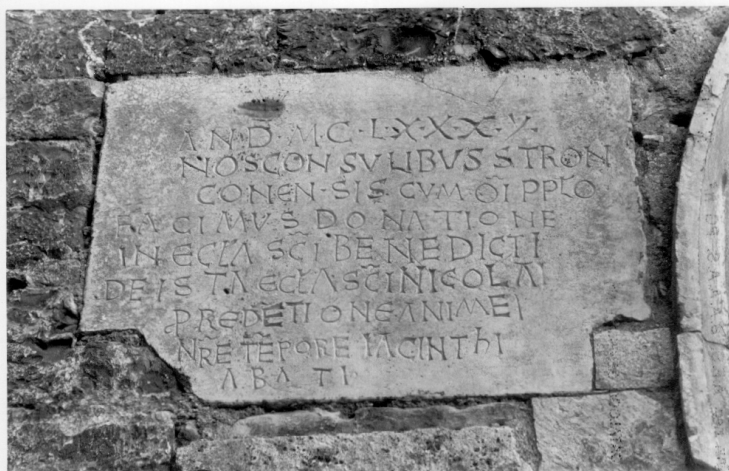 A.N.D.M.C.L.X.X.X.V.
NOS CONSULIBUS STRON
CONEN.SIS.CVM.OI PPLO
FACIMVS DONATIONE
IN ECLA SCI BENEDICTI
DE ISTA ECLA SCI NICOLAI
PREDETIONE ANIMEI
NRE TEPORE IACINThI
ABATI